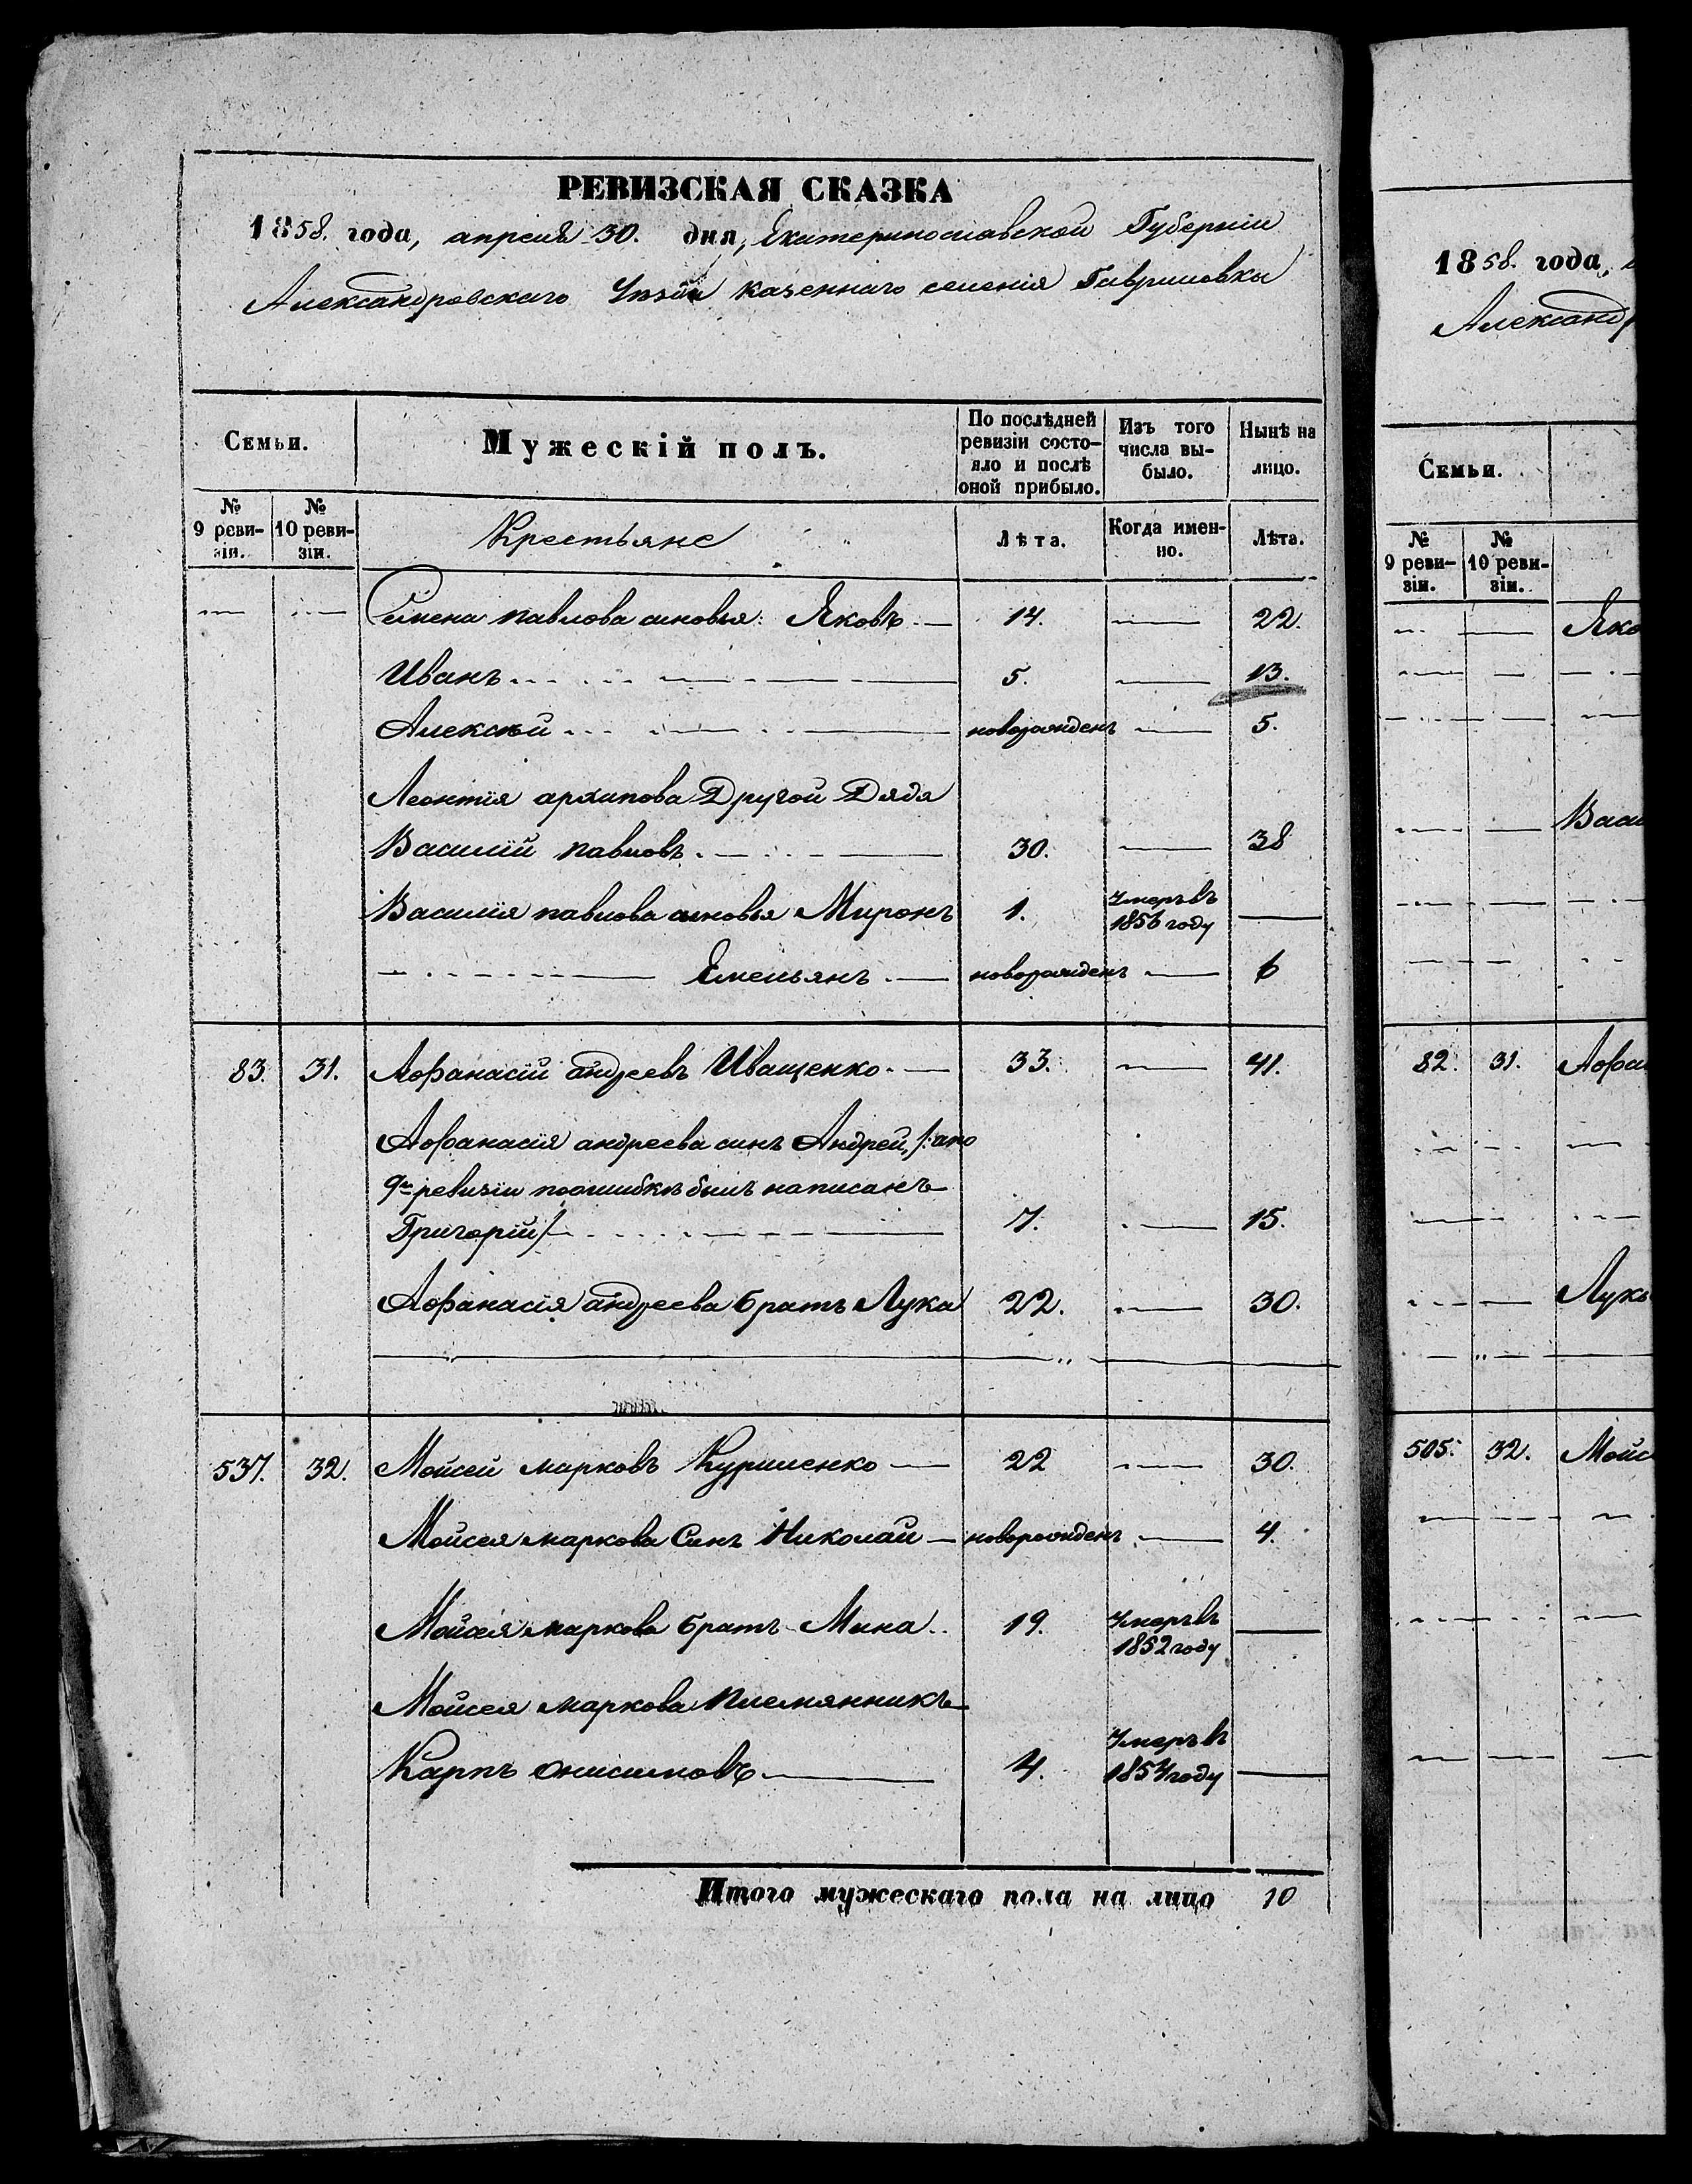 РЕВИЗСКАЯ СКАЗКА
1858. года, апреля 30. дня, Екатеринославской Губерніи
Александровскаго Уѣзда казеннаго селенія Гавриловки
Семьи. Мужескій полъ. По послѣдней ревизіи состояло и послѣ оной прибыло. Изъ того числа выбыло. Нынѣ на лицо.
№ 9 ревизіи. № 10 ревизіи. Крестьяне Лѣта. Когда именно. Лѣта.
Семена павлова сыновья: Яковъ 14. 22.
Иванъ 5. 13.
Алексѣй новорожденъ 5.
Леонтія архипова Другой Дядя
Василій павловъ 30. 38
Василія павлова сыновья Миронъ 1. Умеръ въ 1856 году
Емельянъ новорожденъ 6
83. 31. Афанасій андреевъ Иващенко 33. 41.
Афанасія андреева сынъ Андрей, /: а по
9й ревизіи поошибкѣ былъ написанъ
Григорій/ 7. 15.
Афанасія андреева братъ Лука 22. 30.
537. 32. Мойсей марковъ Куриленко 22 30.
Мойсея маркова Сынъ Николай новорожденъ 4.
Мойсея маркова братъ Мина 19. Умеръ въ 1852 году
Мойсея маркова племянникъ
Карпъ онисимовъ 4. Умеръ въ 1854 году
Итого мужескаго пола на лицо 10
1858. года,
Александ
Семьи.
№ 9 ревизіи. № 10 ревизіи.
Яко
Васи
82. 31. Афан
Лук
505. 32. Мойс